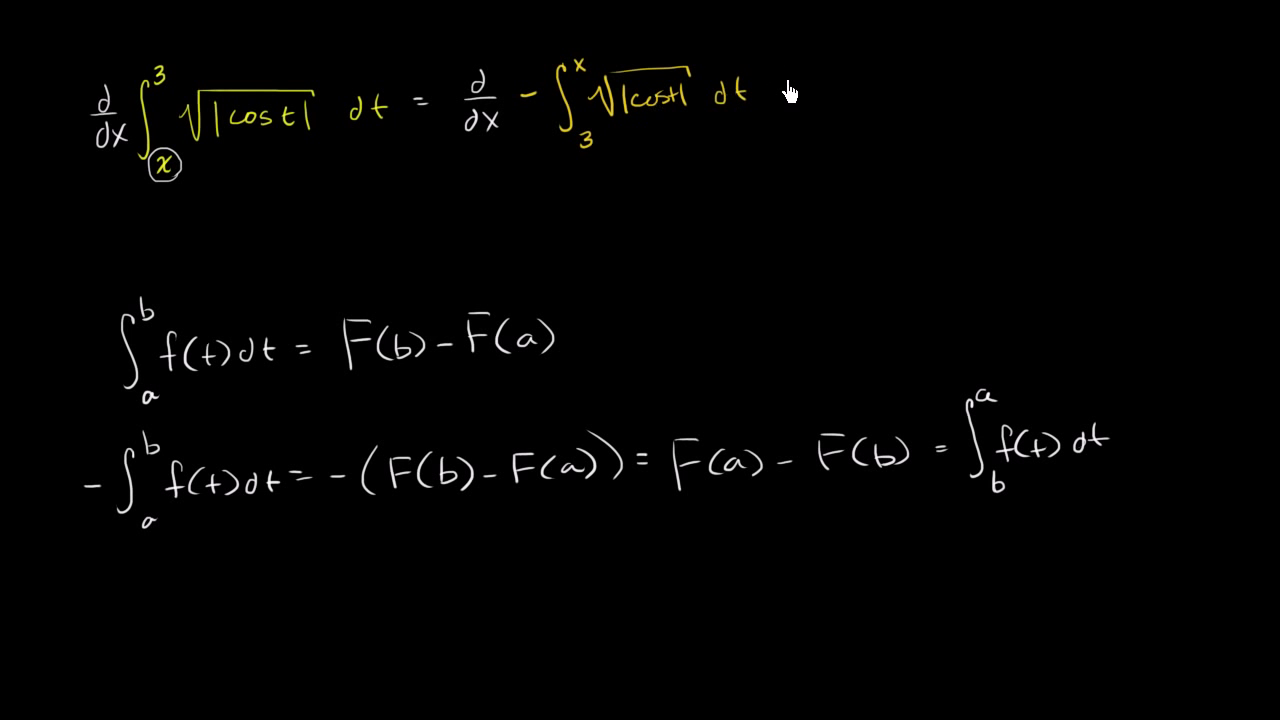 d/dx ∫_x^3 √|cos t| dt = d/dx - ∫_3^x √|cost| dt
∫_a^b f(t)dt = F(b) - F(a)
- ∫_a^b f(t)dt = - (F(b) - F(a)) = F(a) - F(b) = ∫_b^a f(t) dt